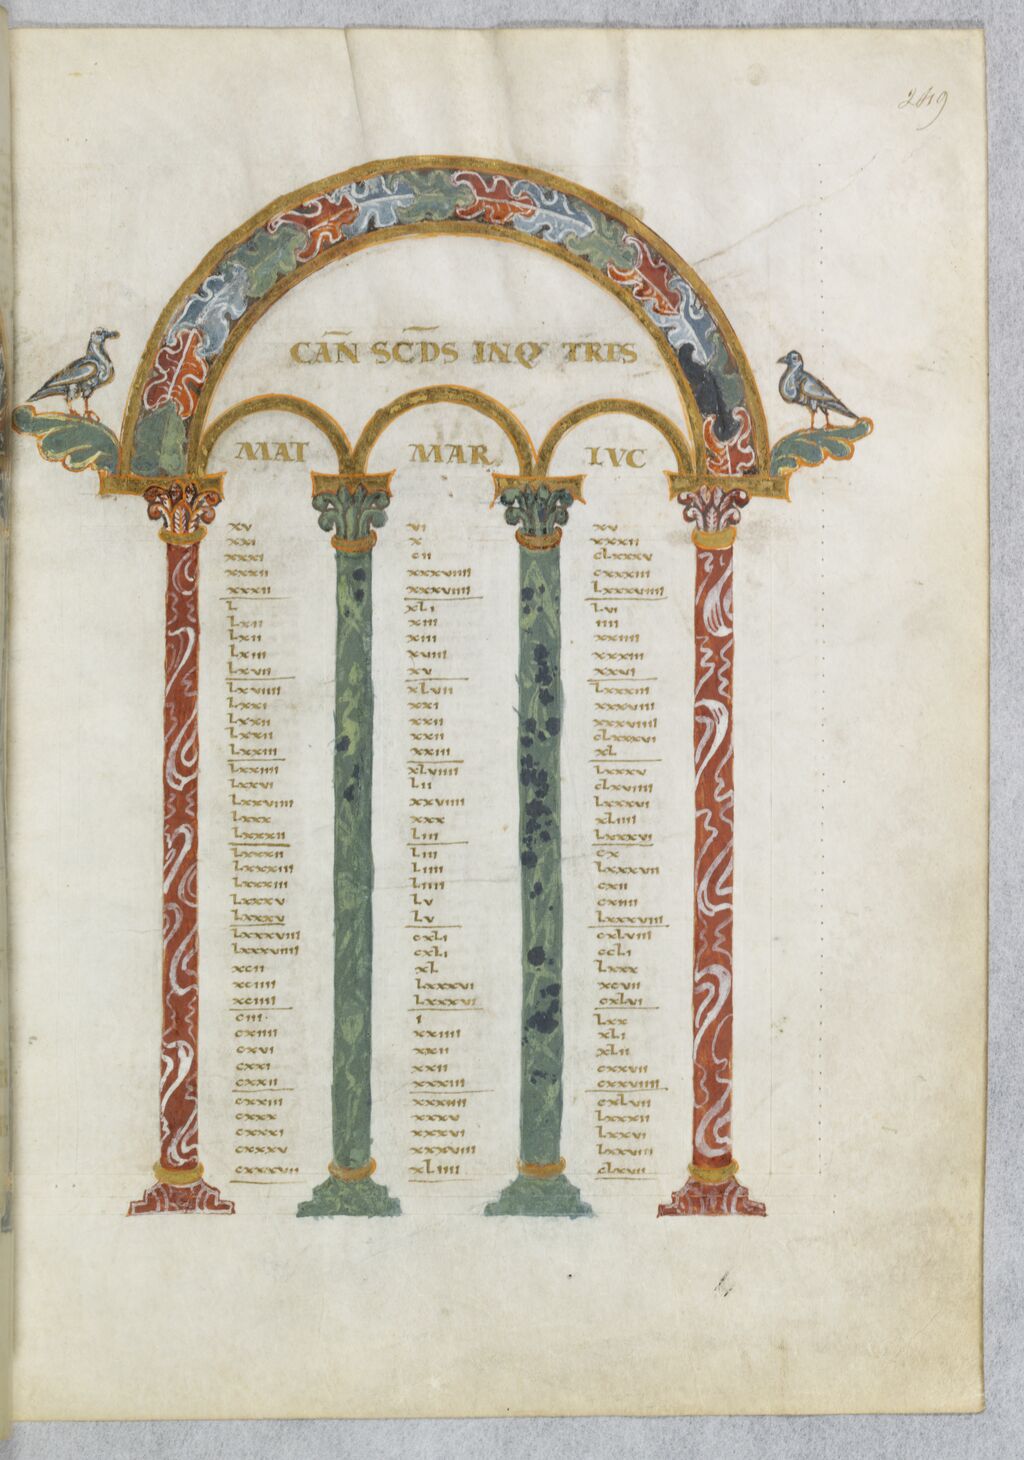 249
CAN SCDS INQ' TRES
MAT MAR LVC
xv vi xv
xxi x xxxii
xxxi cii clxxxv
xxxii xxxviiii cxxxiii
xxxii xxxviiii lxxxviiii
l xli lvi
lxii xiii iiii
lxii xiii xxiiii
lxiii xviii xxxiii
lxvii xv xxvi
lxviiii xlvii lxxxiii
lxxi xxi xxxviii
lxxii xxii xxxviiii
lxxii xxii clxxxvi
lxxiii xxiii xl
lxxiiii xlviiii lxxxv
lxxvi lii clxviiii
lxxviiii xxviiii lxxxvi
lxxx xxx xliiii
lxxxii liii lxxxvi
lxxxii liii cx
lxxxiii liiii lxxxvii
lxxxiii liiii cxii
lxxxv lv cxiiii
lxxxv lv lxxxviii
lxxxviii cxli cxlviii
lxxxviiii cxli ccli
xcii xl lxxx
xciiii lxxxvi xcvii
xciiii lxxxvi cxlvi
ciii i lxx
cxiiii xxiiii xli
cxvi xxii xlii
cxxi xxii cxxvii
cxxii xxxiii cxxviiii
cxxiii xxxiiii cxlvii
cxxx xxxv lxxxii
cxxxi xxxvi lxxvi
cxxxv xxxviii lxxviii
cxxxvii xliiii clxvii